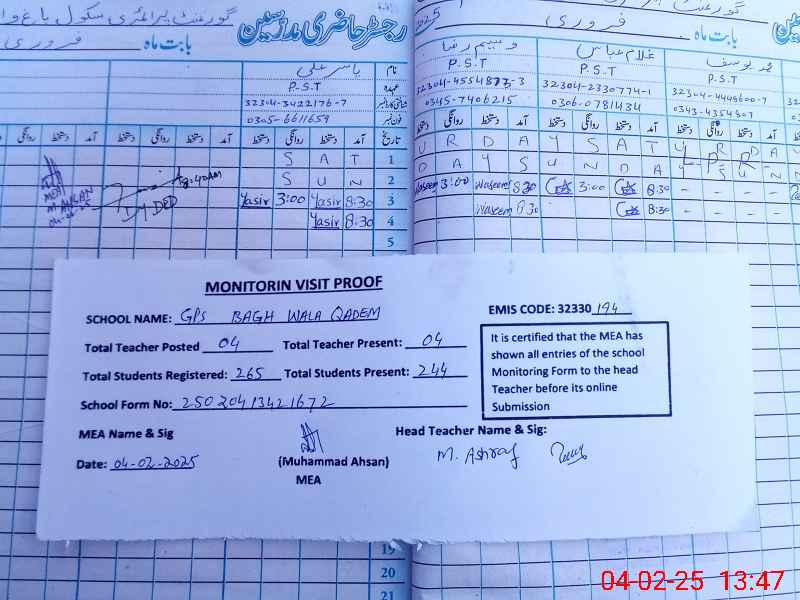 گورنمنٹ پرائمری سکول باغ وا
رجسٹر حاضری مدرسین
بابت ماہ فروری
نام یاسر علی
عہدہ P.S.T
شناختی کارڈ نمبر 32304-3422176-7
فون نمبر 0305-6611659
روانگی دستخط آمد دستخط روانگی دستخط آمد تاریخ
S A T 1
S U N 2
8:40AM
MEA
M AHSAN
04-02-25
Dy DEO
Yasir 3:00 Yasir 8:30 3
Yasir 8:30 4
5
2025
گورنمنٹ پرائمری
رجسٹر حاضری مدرسین
فروری بابت ماہ
وسیم رضا غلام عباس محمد یوسف
P.S.T P.S.T P.S.T
32304-4554873-3 32304-2330774-1 32304-4449600-7
0345-7406215 0306-0781434 0343-4354807
دستخط روانگی دستخط آمد دستخط روانگی دستخط آمد دستخط روانگی دستخط آمد
U R D A Y S A T U R D A Y
D A Y S U N D A Y S U N D A
Waseem 3:00 Waseem 8:30 3:00 8:30 - - - -
Waseem 8:30 8:30 - - - -
MONITORIN VISIT PROOF
SCHOOL NAME: GPS BAGH WALA QADEM
EMIS CODE: 32330 194
Total Teacher Posted 04 Total Teacher Present: 04
Total Students Registered: 265 Total Students Present: 244
School Form No: 25020413421672
It is certified that the MEA has
shown all entries of the school
Monitoring Form to the head
Teacher before its online
Submission
MEA Name & Sig
Head Teacher Name & Sig:
M. Ashraf
Date: 04-02-2025
(Muhammad Ahsan)
MEA
19
20
21
04-02-25 13:47